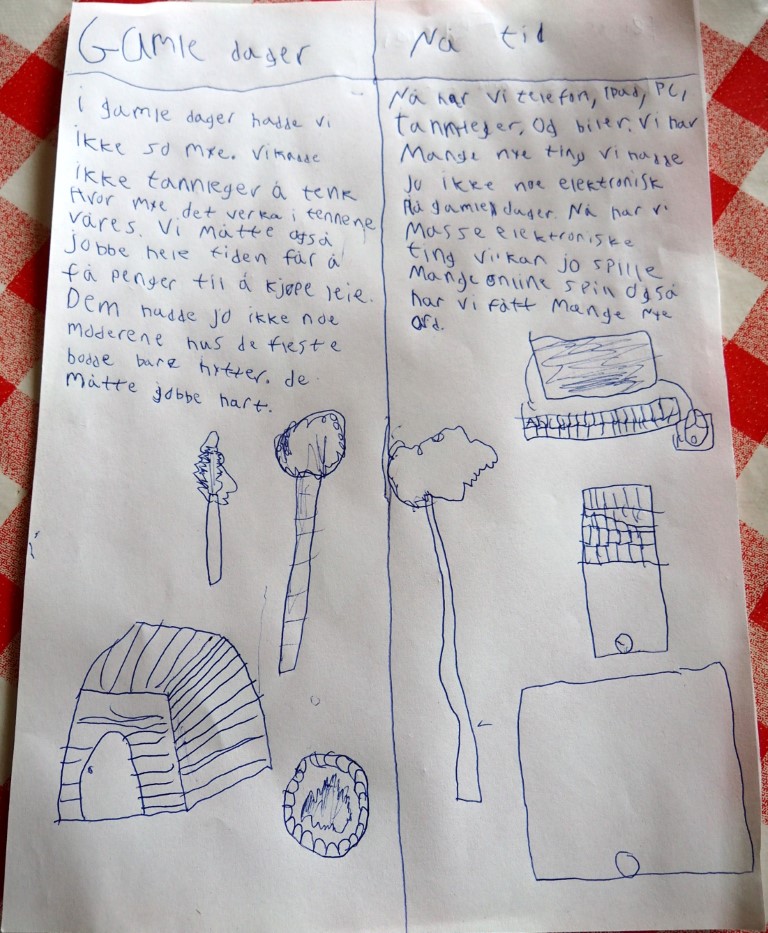 Gamle dager
i gamle dager hadde vi
ikke så mye. vi hadde
ikke tannleger å tenk
Hvor mye det verka i tennene
våres. Vi måtte også
jobbe hele tiden får å
få penger til å kjøpe leie.
Dem hadde jo ikke noe
moderene hus de fleste
bodde bare hytter. de
måtte jobbe hart.
Nå tid
Nå har vi telefon, ipad, PC,
tannleger, og biler. Vi har
Mange nye ting vi hadde
jo ikke noe elektronisk
på gamle dager. Nå har vi
Masse elektroniske
ting vi kan jo spille
Mange online spill også
har vi fått Mange nye
ord.